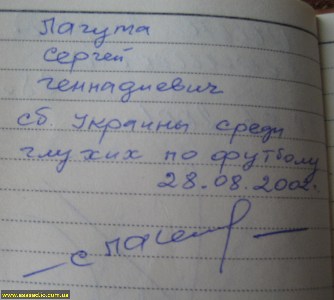 Лагута
Сергей
Геннадиевич
сб. Украины среди
глухих по футболу
28.08.2002.